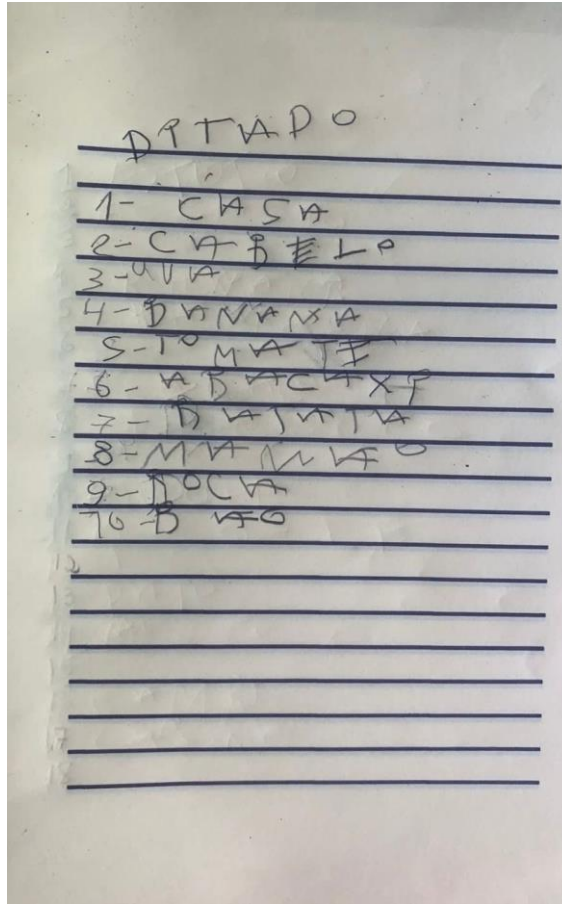 DITADO
1- CASA
2- CABELO
3- UVA
4- BANANA
5- TOMATE
6- ABACAXI
7- BATATA
8- MAMAO
9- BOCA
10- BAO